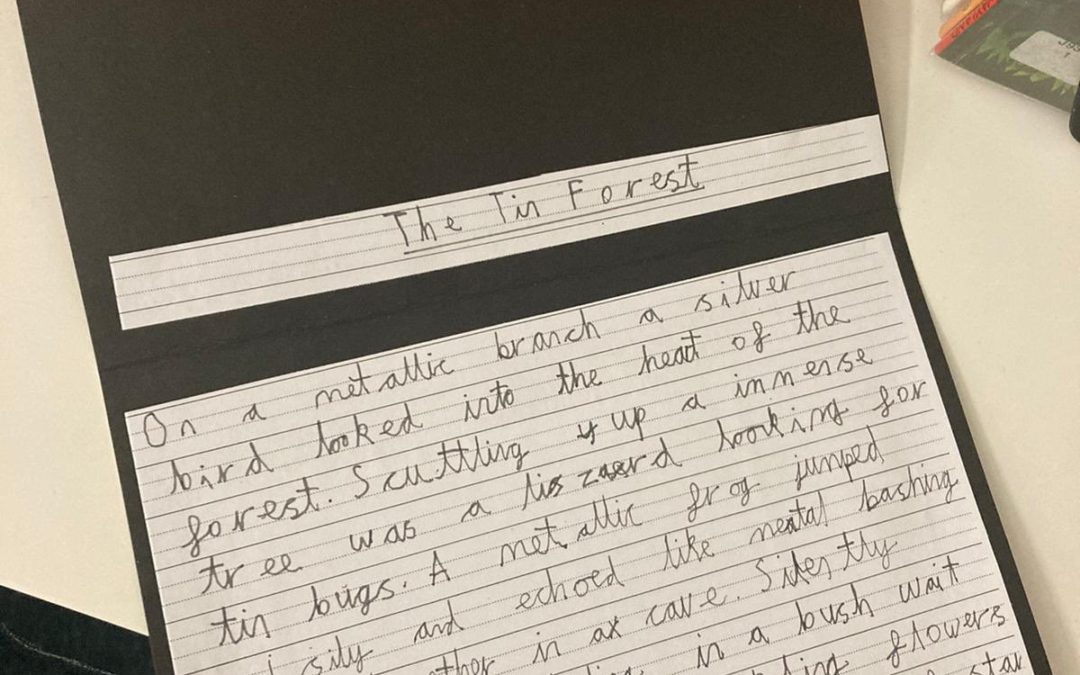 The Tin Forest
On a metallic branch a silver
bird looked into the heat of the
forest. Scuttling up a immense
tree was a looking for
tin bugs. A metallic frog jumped
and echoed like metal bashing
in cave. Silently
in a bush wait
flowers
star